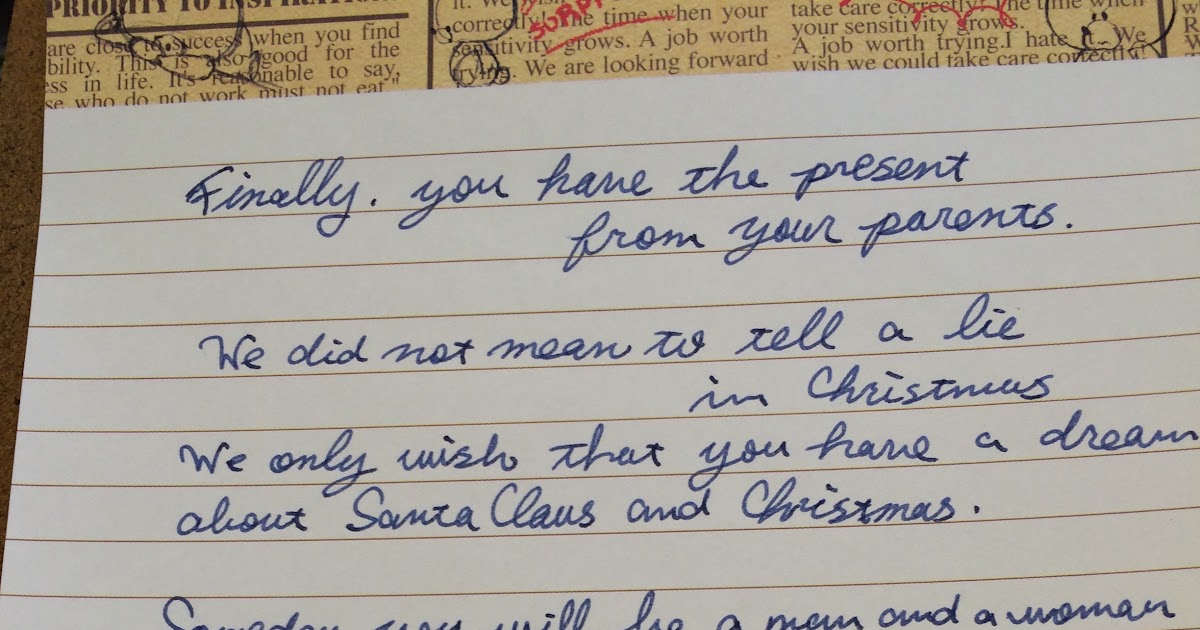 PRIORITY TO INSPIRATION
are close to success when you find
bility. This is also good for the
ess in life. It's reasonable to say,
se who do not work must not eat"
it. We
correctly. The time when your
SURPR
sensitivity grows. A job worth
trying. We are looking forward
take care correctly. The time when
your sensitivity grows.
A job worth trying.I hate it. We
wish we could take care correctly!
Finally. you have the present
from your parents.
We did not mean to tell a lie
in Christmas
We only wish that you have a dream
about Santa Claus and Christmas.
Someday you will be a man and a woman